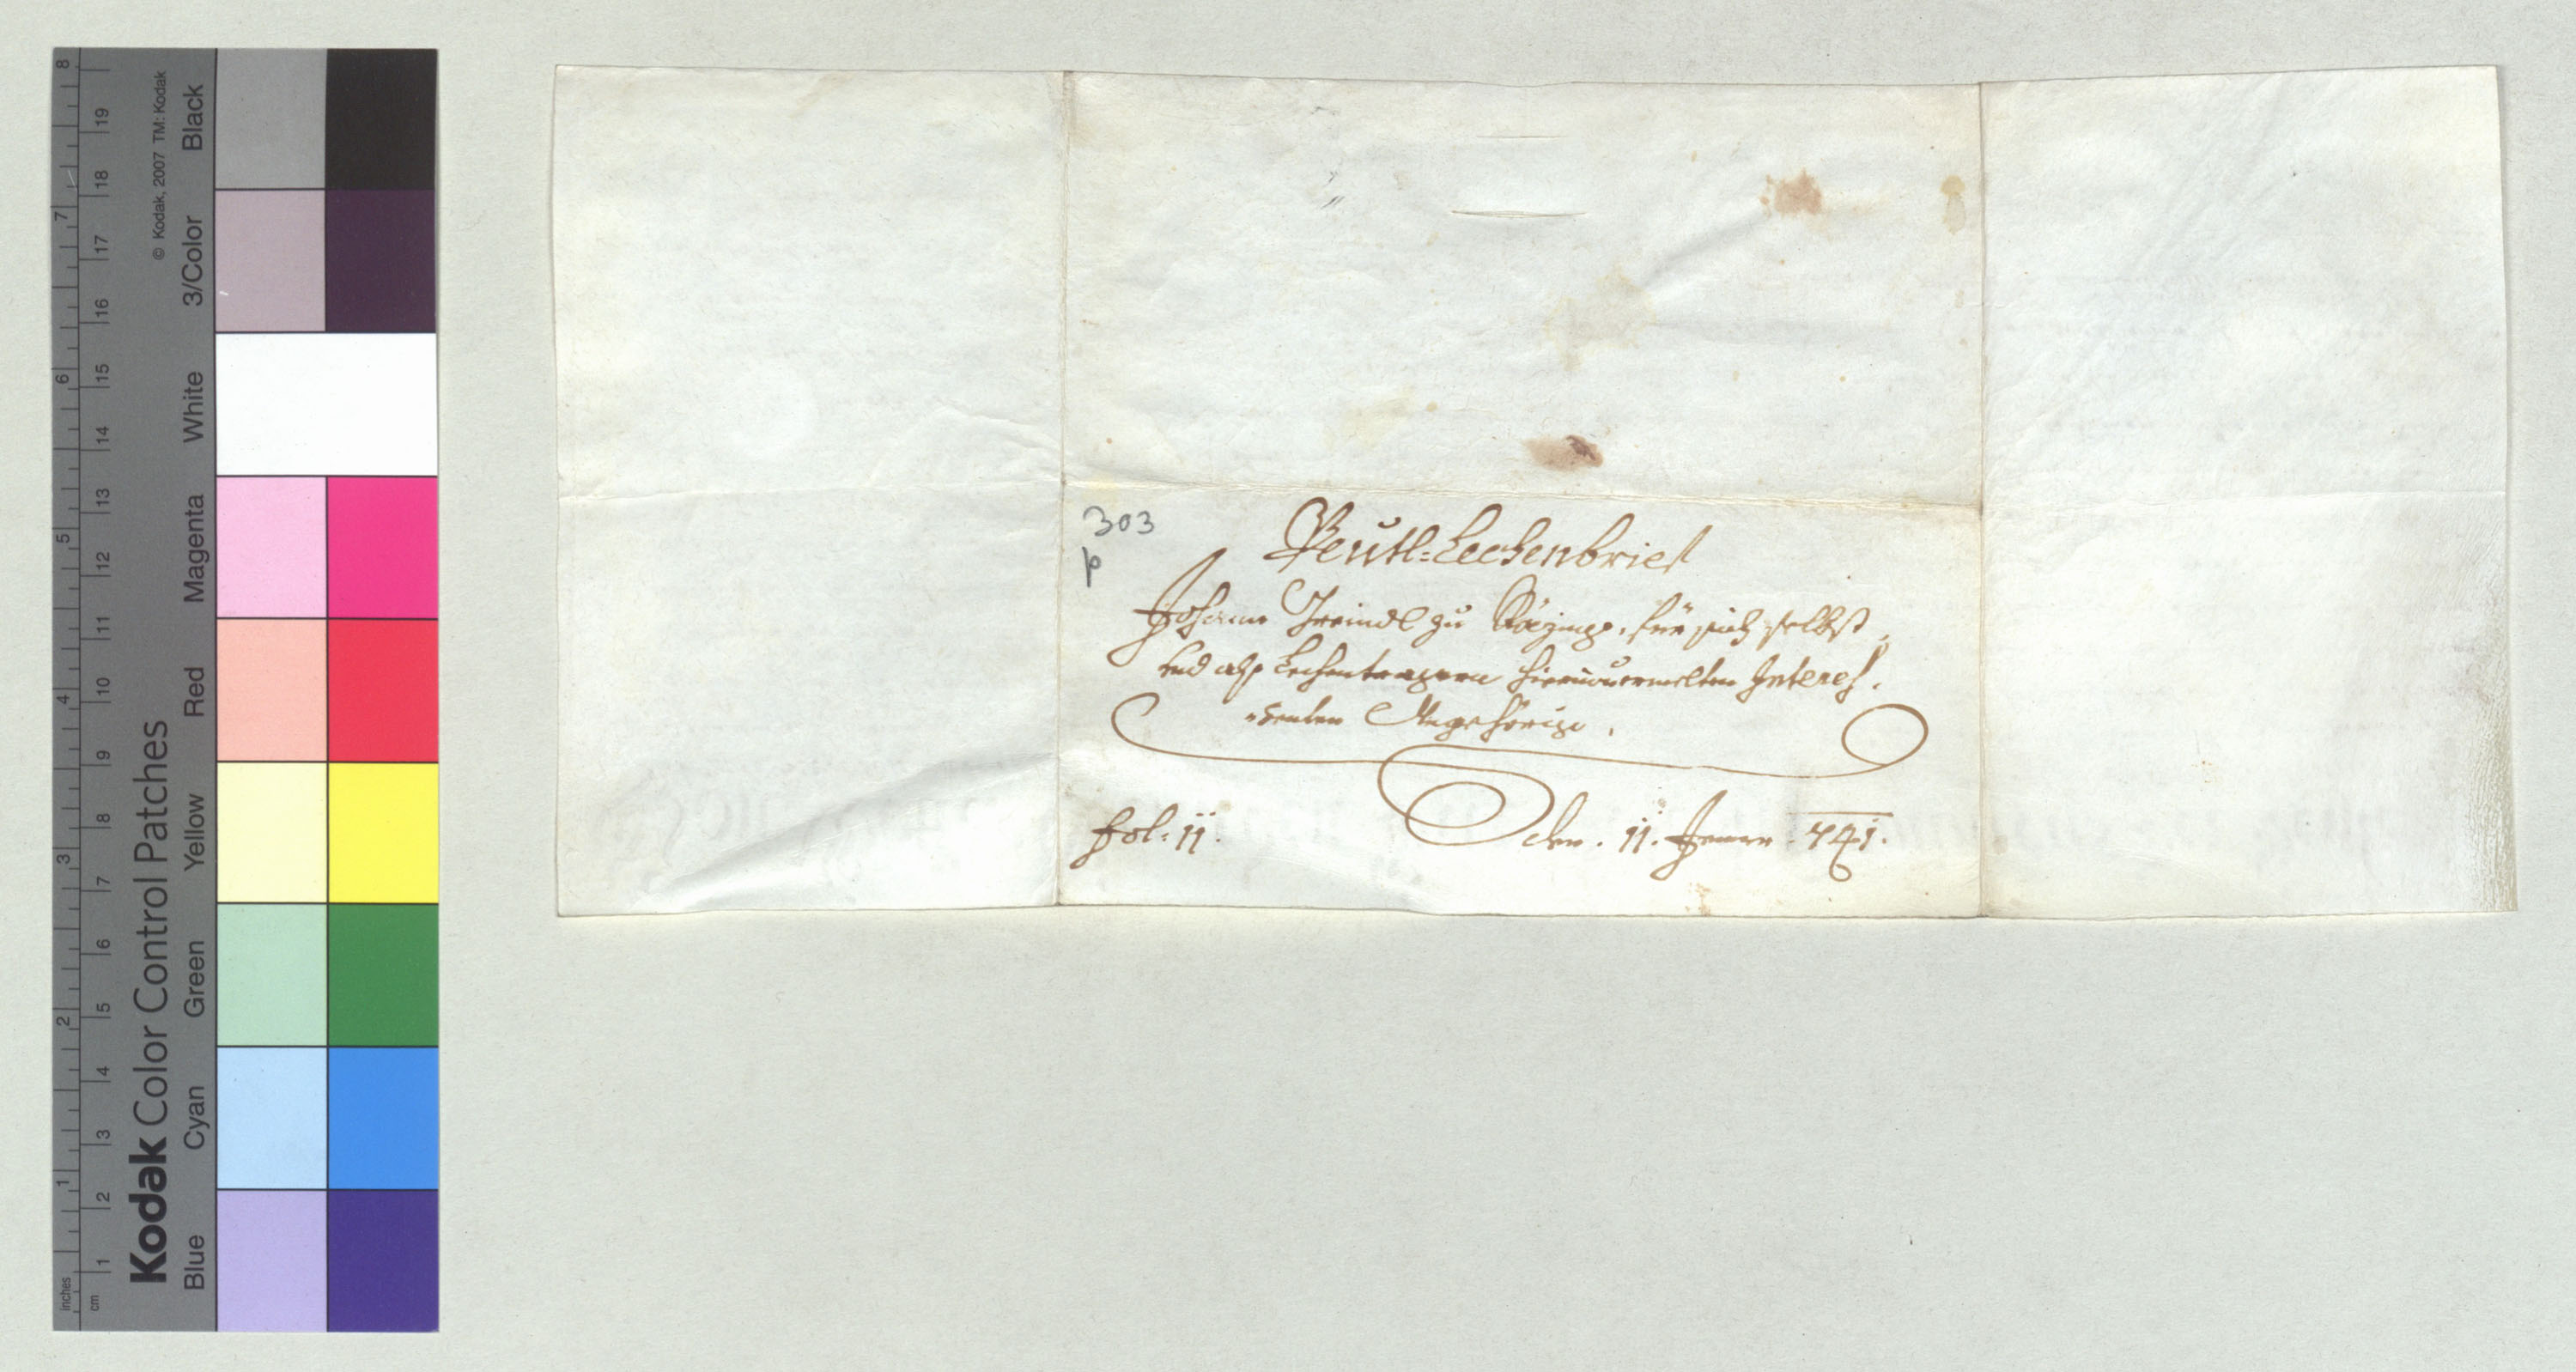 Kodak Color Control Patches
© Kodak, 2007 TM: Kodak
Blue Cyan Green Yellow Red Magenta White 3/Color Black
inches 1 2 3 4 5 6 7 8
cm 1 2 3 4 5 6 7 8 9 10 11 12 13 14 15 16 17 18 19
303
p
Peütl=Lechenbrief
Johann Treindl zu für sich selbst
und alß Lechentragern hierinvermelten Interes¬
senten Angehörige.
Fol: 11.
den. 11. Jener. 741.